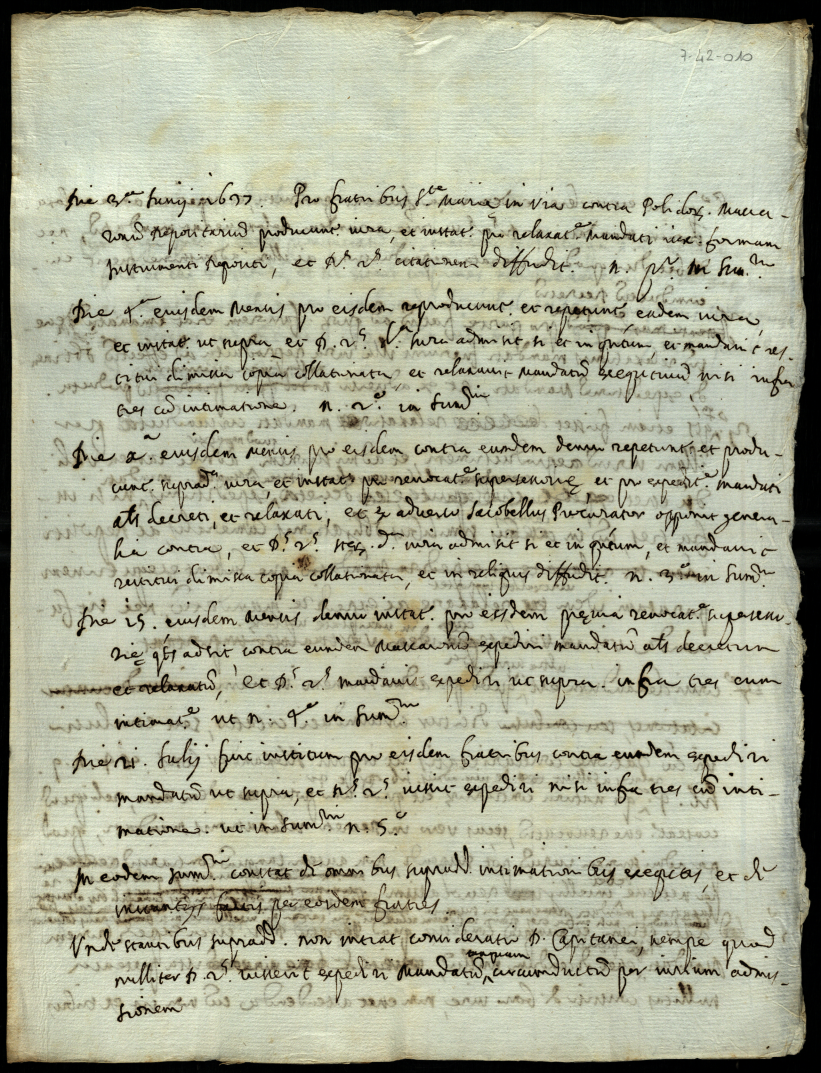 7-42-010
Die 3.a Junij 1677. Pro fratribus S.te Marię in Via contra Polidor. Macca-
ronũ depositariũ producunt iura, et instat. pro relaxat.e mandati iux. formam
Instrumenti depositi, et D.s 2.s citationem diffudit. n. p.o in Sum.m
Die 4.a eiusdem Mensis pro eisdem reproducunt. et repetunt. eadem iura
et instat. ut supra et D. 2.s d.a Iura admisit si et in q̃tum, et mandavit res-
titui dimissa copia collationata, et relaxavit Mandatũ exequtivũ nisi infra
tres cũ intimatione. n. 2.o in Sum.m
Die X.a eiusdem Mensis pro eisdem contra eundem denuo repetunt. et produ-
cunt. suprad.a iura, et instat. pro revocat.e supersessorię, et pro expedit.e mandati
als decreti, et relaxati, et ex adverso Jacobellus Procurator opponit genera-
lia contra, et D.s 2.s d.a iura admisit si et in q̃tum, et mandavit
restitui dimissa copia collationata, et in reliquis diffudit. n. 3.o in Sum.m
Die 15. eiusdem Mensis denuo instat. pro eisdem pręvia revocat.e supersesso-
rię q̃ts adsit contra eundem Maccaronũ expediri mandatũ als decretum
et relaxatũ, et D.s 2.s mandavit expediri ut supra. infra tres cum
intimat.e ut n. 4.o in Sum.m
Die 21. Julij fuit institum pro eisdem fratribus contra eundem expediri
mandatũ ut supra, et D.s 2.s iussit expediri nisi infra tres cũ inti-
matione. ut in Sum.m n. 5.o
In eodem Sum.m constat de omnibus supradd. intimationibus exequtis, et de
factis per eosdem fratres
Unde stantibus supradd. non intrat consideratio D. Capitanei, nempe quod
nulliter D. 2.s iusserit expediri Mandatũ circumductũ per iurium admis-
sionem